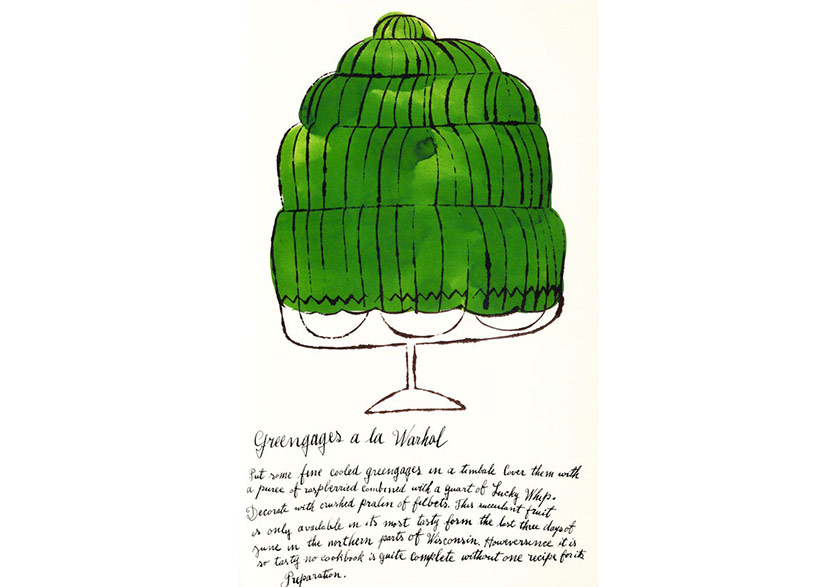 Greengages a la Warhol
Put some fine cooled greengages in a timbale Cover them with
a puree of raspberried combined with a quart of Lucky Whip.
Decorate with crushed pralin of filberts. This succulant fruit
is only available in its most tasty form the last three days of
June in the northern parts of Wisconsin. Howeversince it is
so tasty no cookbook is quite complete without one recipe for its
Preparation.